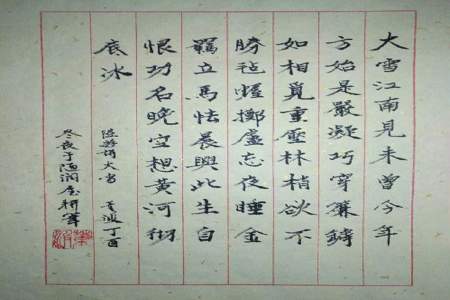 大雪江南見未曾今年
方始是嚴凝巧穿簾罅
如相覓重壓林梢欲不
勝氈幄擲盧忘夜睡金
羈立馬怯晨興此生自
恨功名晚空想黃河徹
底冰
陸游詩大雪 丁酉
冬夜于